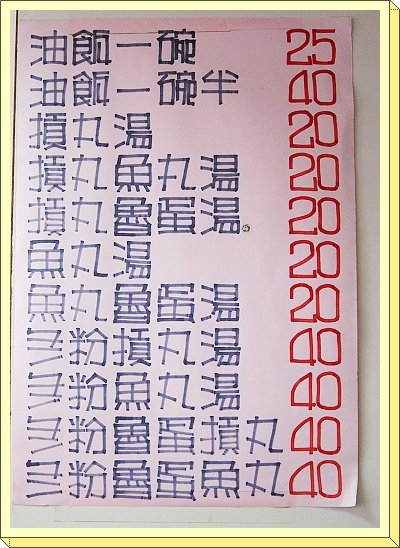 油飯一碗 25
油飯一碗半 40
摃丸湯 20
摃丸魚丸湯 20
摃丸魯蛋湯 20
魚丸湯 20
魚丸魯蛋湯 20
冬粉摃丸湯 40
冬粉魚丸湯 40
冬粉魯蛋摃丸 40
冬粉魯蛋魚丸 40